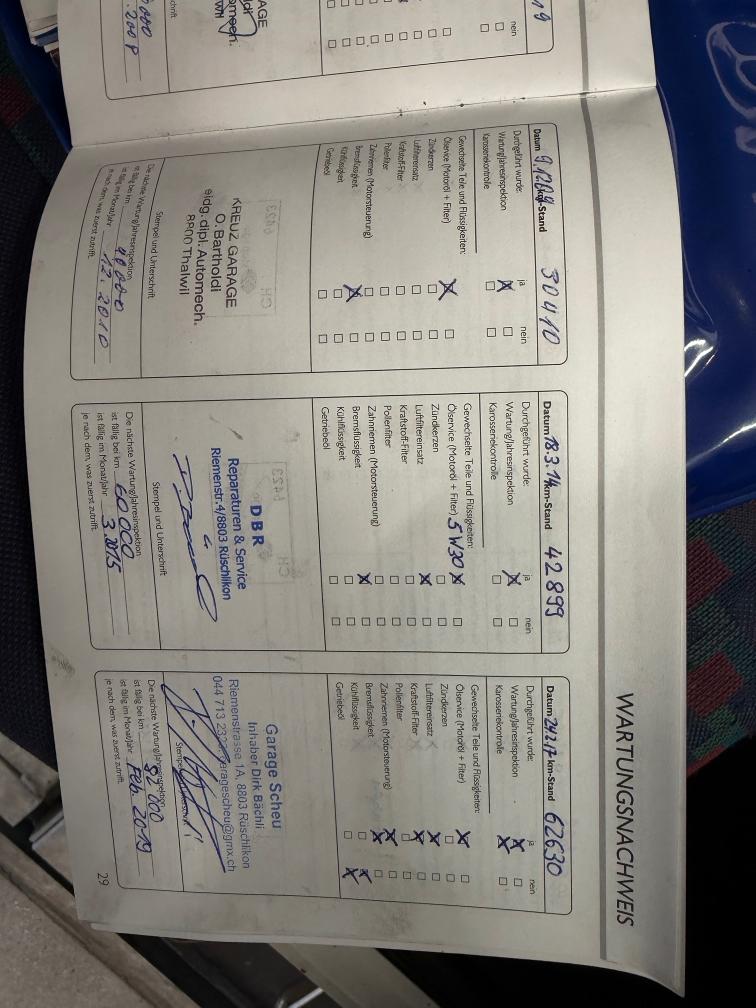 WARTUNGSNACHWEIS
19
nein
AGE
Datum 9.12.09 km-Stand 30410
Durchgeführt wurde: ja nein
Wartung/Jahresinspektion
Karosseriekontrolle
Gewechselte Teile und Flüssigkeiten:
Ölservice (Motoröl + Filter)
Zündkerzen
Luftfiltereinsatz
Kraftstoff-Filter
Pollenfilter
Zahnriemen (Motorsteuerung)
Bremsflüssigkeit
Kühlflüssigkeit
Getriebeöl
KREUZ GARAGE
O. Bartholdi
eidg. dipl. Automech.
8800 Thalwil
Stempel und Unterschrift
Die nächste Wartung/Jahresinspektion
ist fällig bei km 40000
ist fällig im Monat/Jahr 12. 2010
je nach dem, was zuerst zutrifft.
Datum 18.3.14 km-Stand 42899
Durchgeführt wurde: ja nein
Wartung/Jahresinspektion
Karosseriekontrolle
Gewechselte Teile und Flüssigkeiten:
Ölservice (Motoröl + Filter) 5W30
Zündkerzen
Luftfiltereinsatz
Kraftstoff-Filter
Pollenfilter
Zahnriemen (Motorsteuerung)
Bremsflüssigkeit
Kühlflüssigkeit
Getriebeöl
DBR
Reparaturen & Service
Riemenstr.4/8803 Rüschlikon
Stempel und Unterschrift
Die nächste Wartung/Jahresinspektion
ist fällig bei km 60000
ist fällig im Monat/Jahr 3.2015
je nach dem, was zuerst zutrifft.
Datum 24.2.17 km-Stand 62630
Durchgeführt wurde: ja nein
Wartung/Jahresinspektion
Karosseriekontrolle
Gewechselte Teile und Flüssigkeiten:
Ölservice (Motoröl + Filter)
Zündkerzen
Luftfiltereinsatz
Kraftstoff-Filter
Pollenfilter
Zahnriemen (Motorsteuerung)
Bremsflüssigkeit
Kühlflüssigkeit
Getriebeöl
Garage Scheu
Inhaber Dirk Bächli
Riemenstrasse 1A, 8803 Rüschlikon
044 713 garagescheu@gmx.ch
Stempel
Die nächste Wartung/Jahresinspektion
ist fällig bei km 82000
ist fällig im Monat/Jahr Feb. 2019
je nach dem, was zuerst zutrifft.
29